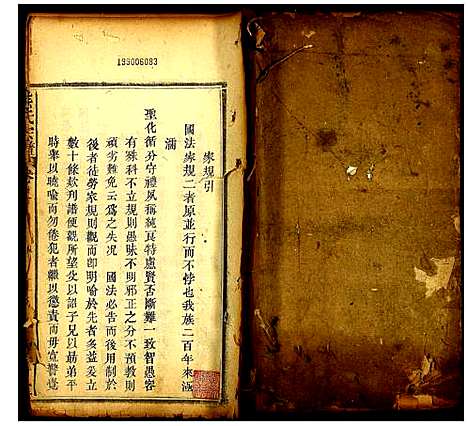 199006083
家規引
國法家規二者原並行而不悖也我族二百年來涵
濡
聖化循分守禮夙稱純良特慮賢否斷難一致智愚容
有殊科不立規則愚昧不明邪正之分不預教則
頑劣難免云爲之失况　國法必告而後用制於
後者徒勞家規則觀而即明喻於先者多益爰立
數十條欵刋譜便觀所望父以詔子兄以勗弟平
時舉以曉喻而勿倦犯者繼以懲責而毋寬誓覺
氏宗譜